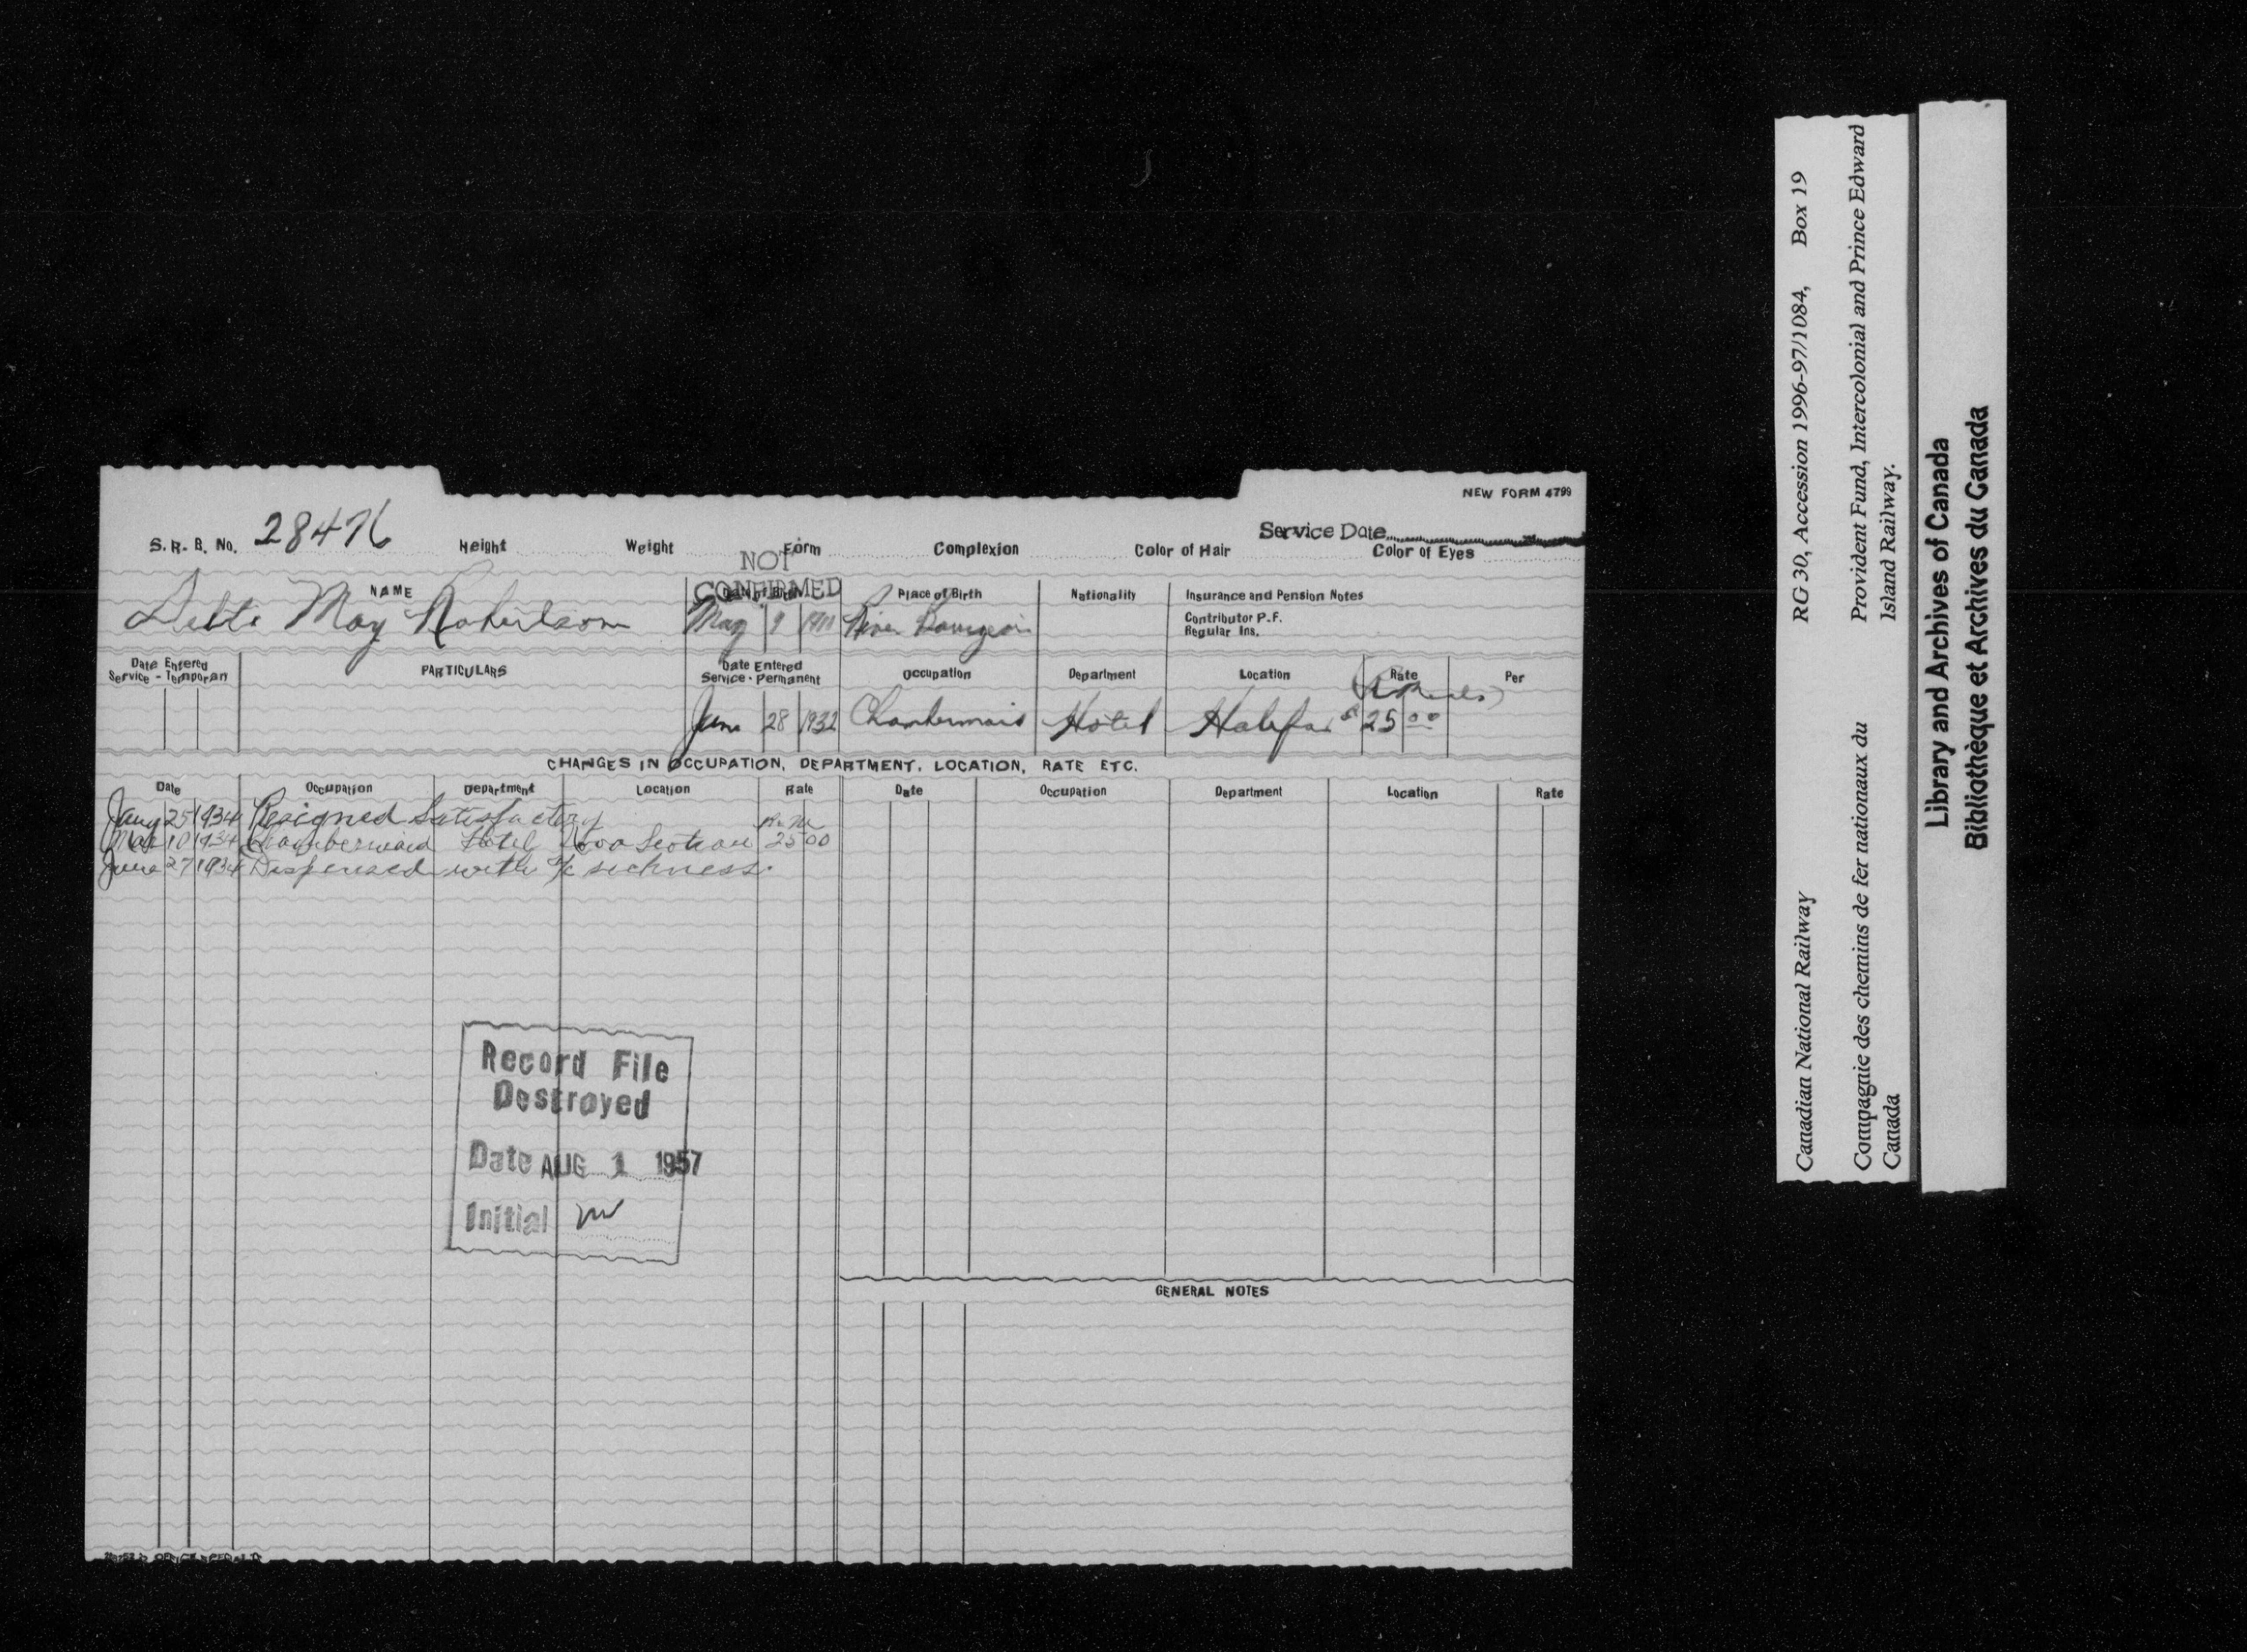 NEW FORM 4799
Service Date
S.R.B. No. 28476 Height Weight Form Complexion Color of Hair Color of Eyes
NOT
CONFIRMED
NAME Date of Birth Place of Birth Nationality Insurance and Pension Notes
May Robertson May 9 1911 River Bourgeois
Contributor P.F.
Regular Ins.
Date Entered
Service - Temporary
PARTICULARS
Date Entered
Service - Permanent
Occupation Department Location Rate Per
June 28 1932 Chambermaid Hotel Halifax $25 00
CHANGES IN OCCUPATION, DEPARTMENT, LOCATION, RATE ETC.
Date Occupation Department Location Rate Date Occupation Department Location Rate
Jany 25 1934 Resigned Satisfactory
Mar 10 1934 Chambermaid Hotel Nova Scotian R&M 25 00
June 27 1934 Dispensed with a/c sickness.
Record File
Destroyed
Date AUG 1 1957
Initial
GENERAL NOTES
Canadian National Railway
RG 30, Accession 1996-97/1084, Box 19
Compagnie des chemins de fer nationaux du
Canada
Provident Fund, Intercolonial and Prince Edward
Island Railway.
Library and Archives of Canada
Bibliothèque et Archives du Canada